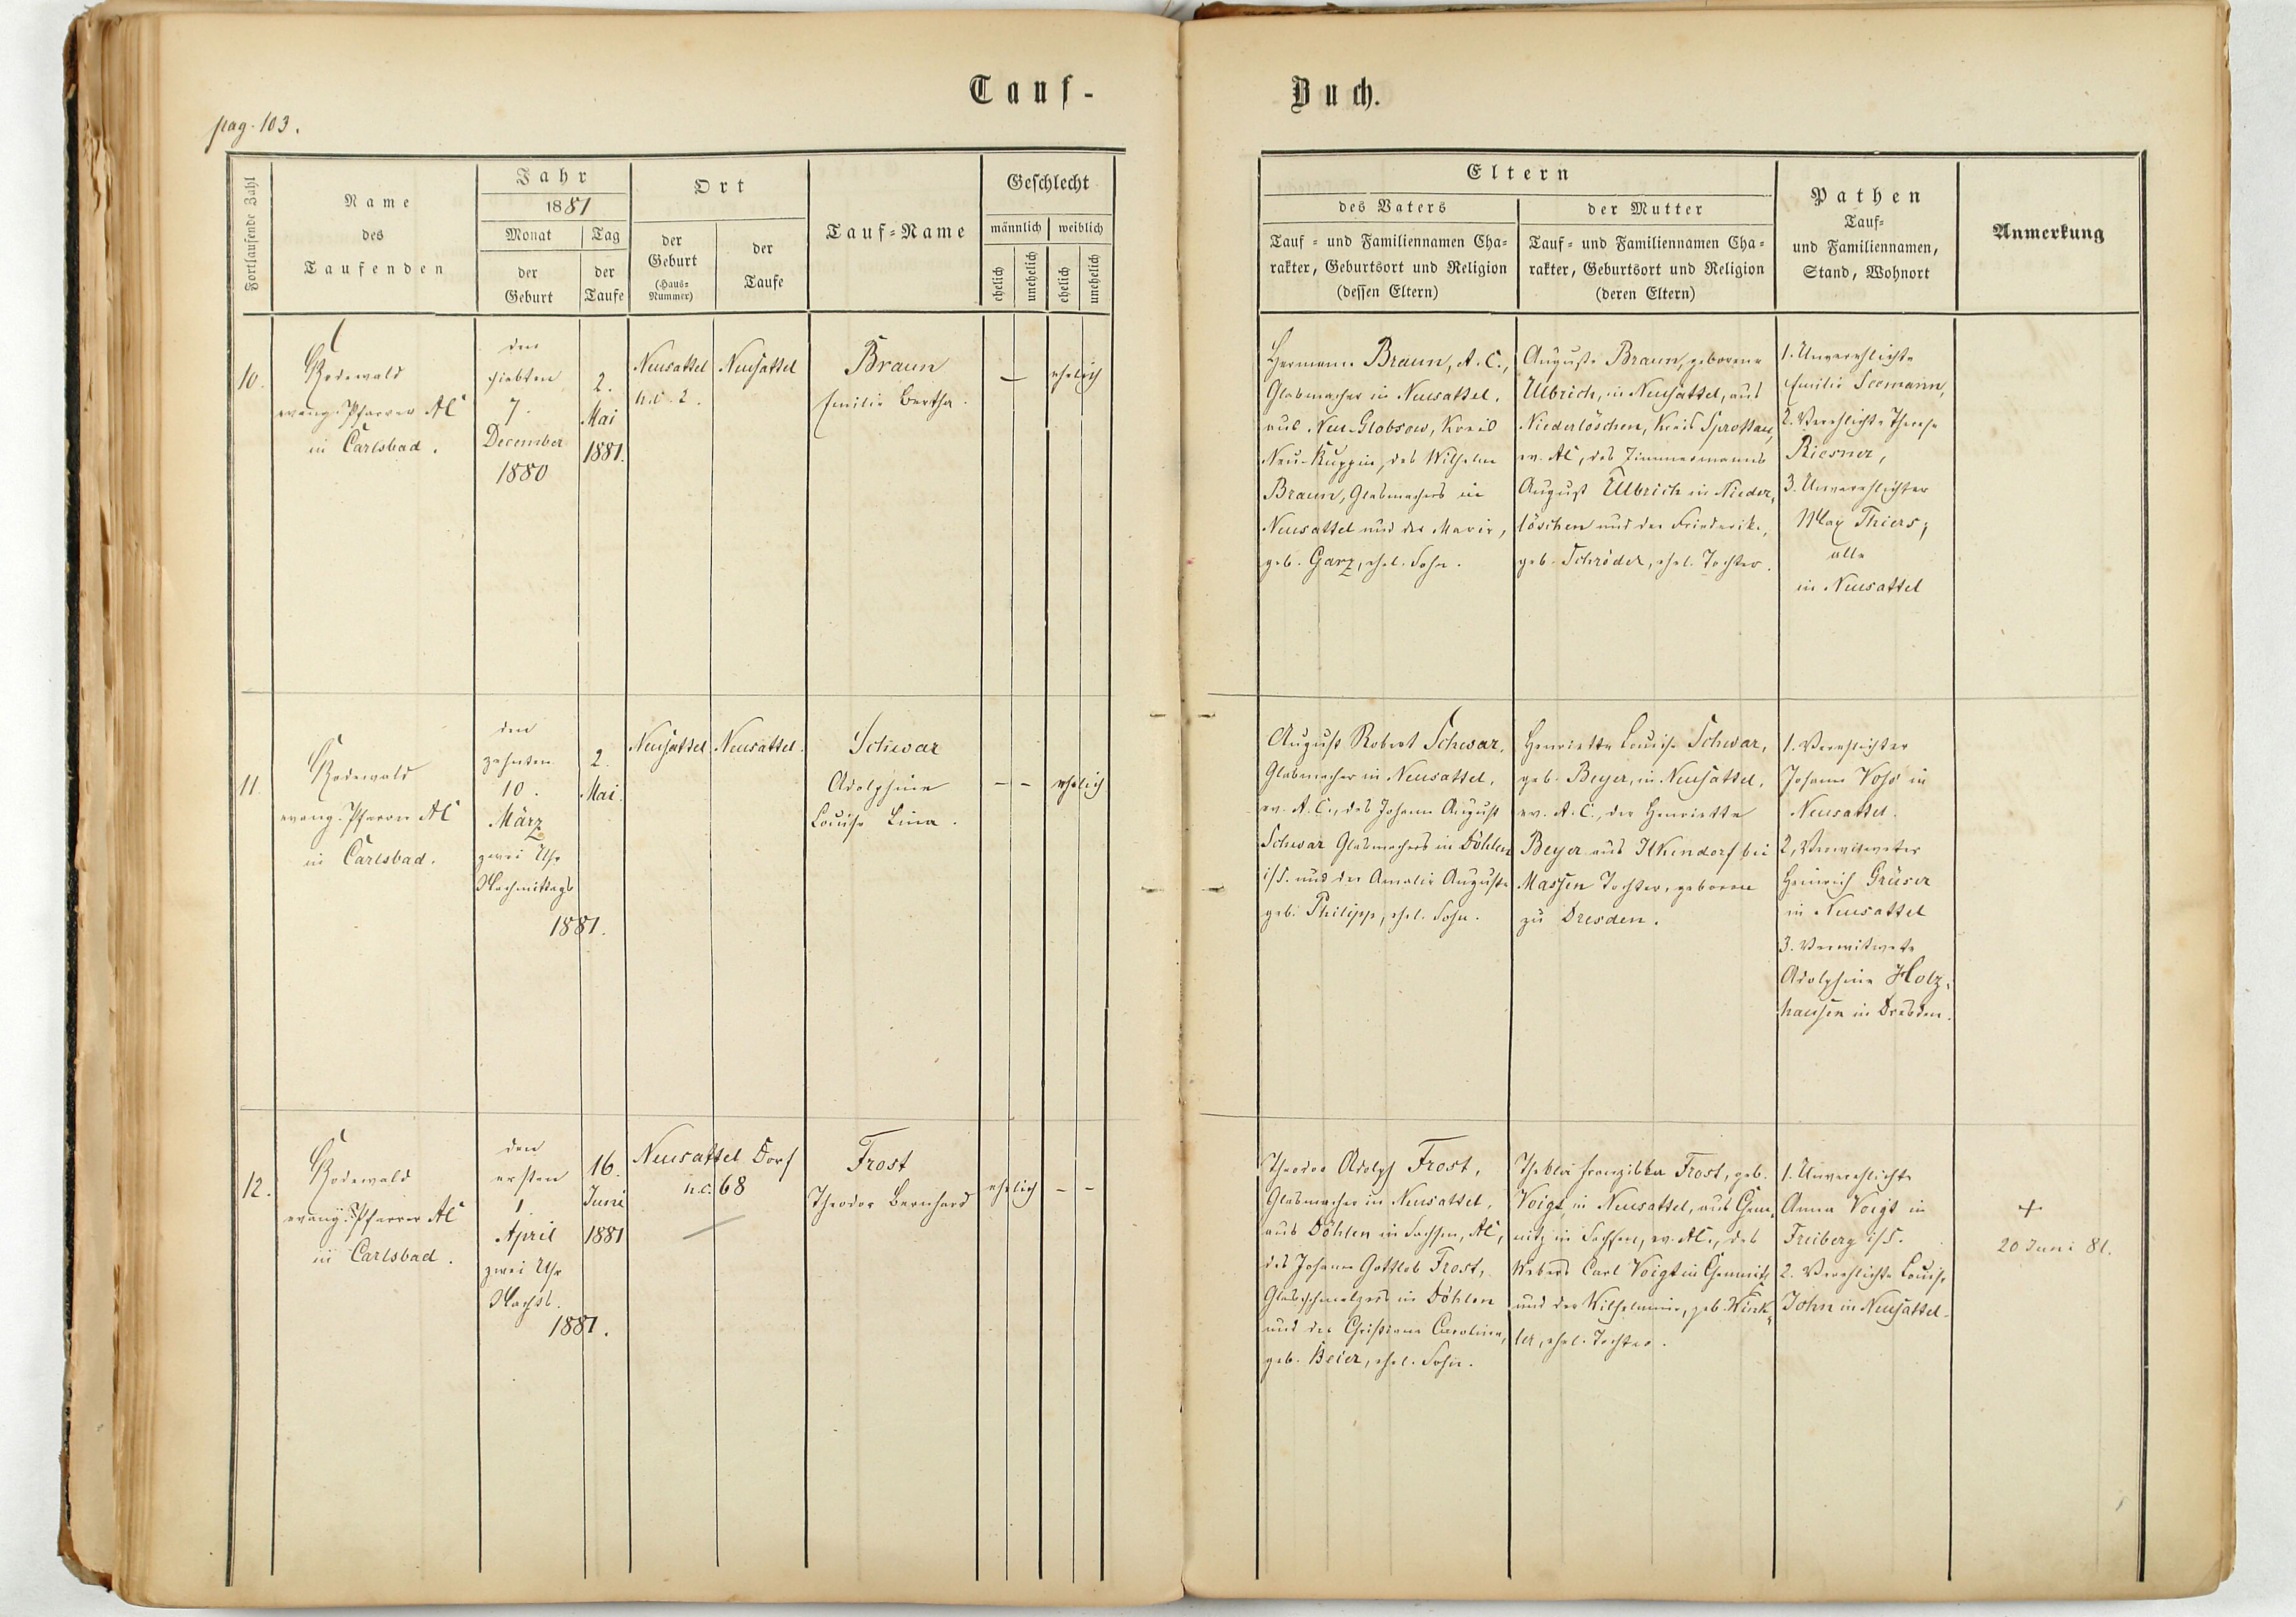 Tauf-
Buch.
pag. 103.
Fortlaufende Zahl
Name
des
Taufenden
Jahr
1881
Monat
Tag
der
Geburt
der
Taufe
Ort
der
Geburt
(Haus-
Nummer)
der
Taufe
Tauf-Name
Geschlecht
männlich
weiblich
ehelich
unehelich
ehelich
unehelich
Eltern
des Vaters
Tauf- und Familiennamen Cha-
rakter, Geburtsort und Religion
(dessen Eltern)
der Mutter
Tauf- und Familiennamen Cha-
rakter, Geburtsort und Religion
(deren Eltern)
Pathen
Tauf-
und Familiennamen,
Stand, Wohnort
Anmerkung
10.
Rodewald
evang. Pfarrer AC
in Carlsbad.
den
siebten
7.
December
1880
2.
Mai
1881.
Neusattel
n.c. 2.
Neusattel
Braun
Emilie Bertha.
—
ehelich
Hermann Braun, A.C.,
Glasmacher in Neusattel,
aus Neu-Globsow, Kreis
Neu-Ruppin, des Wilhelm
Braun, Glasmachers in
Neusattel und der Marie,
geb. Garz, ehel. Sohn.
Auguste Braun, geborene
Ulbrich, in Neusattel, aus
Niederlöschen, Kreis Sprottau,
ev. AC, des Zimmermanns
August Ulbrich in Nieder-
löschen und der Friederike,
geb. Schröder, ehel. Tochter.
1. Unverehlichte
Emilie Seemann,
2. Verehlichte Therese
Riesner,
3. Unverehlichter
Max Thiers,
alle
in Neusattel
11.
Rodewald
evang. Pfarrer AC
in Carlsbad.
den
zehnten
10.
März
zwei Uhr
Nachmittags
1881.
2.
Mai.
Neusattel
Neusattel.
Schwar
Adolphine
Louise Lina.
— —
ehelich
August Robert Schwar,
Glasmacher in Neusattel,
ev. A.C., des Johann August
Schwar Glasmachers in Döhlen
i/S. und der Amalie Auguste
geb. Philipp, ehel. Sohn.
Henriette Louise Schwar,
geb. Beyer, in Neusattel,
ev. A.C., der Henriette
Beyer aus Ilkendorf bei
Massen Tochter, geboren
zu Dresden.
1. Verehlichter
Johann Voss in
Neusattel.
2, Verwitweter
Heinrich Grüser
in Neusattel
3. Verwitwete
Adolphine Holz-
hausen in Dresden.
12.
Rodewald
evang. Pfarrer AC
in Carlsbad.
den
ersten
1.
April
zwei Uhr
Nachts.
1881.
16.
Juni
1881
Neusattel Dorf
n.c. 68
Frost
Theodor Bernhard
ehelich
— —
Theodor Adolph Frost,
Glasmacher in Neusattel,
aus Döhlen in Sachsen, AC,
des Johann Gottlob Frost,
Glasschmelzers in Döhlen
und der Christiane Caroline,
geb. Beier, ehel. Sohn.
Thekla Franziska Frost, geb.
Voigt, in Neusattel, aus Chem-
nitz in Sachsen, ev. AC., des
Webers Carl Voigt in Chemnitz
und der Wilhelmine, geb. Wink-
ler, ehel. Tochter.
1. Unverehlichte
Anna Voigt in
Freiberg i/S.
2. Verehlichte Louise
John in Neusattel.
+
20 Juni 81.